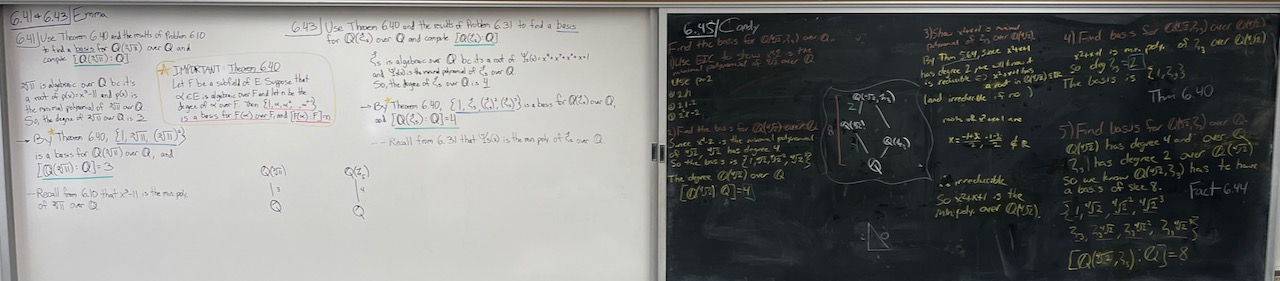 6.41 & 6.43 | Emma
6.41 | Use Theorem 6.40 and the results of Problem 6.10
to find a basis for Q(∛11) over Q and
compute [Q(∛11) : Q]
∛11 is algebraic over Q bc it's
a root of p(x)=x³-11 and p(x) is
the minimal polynomial of ∛11 over Q.
So, the degree of ∛11 over Q is 3
→ By Theorem 6.40, {1, ∛11, (∛11)²}
is a basis for Q(∛11) over Q, and
[Q(∛11) : Q] = 3
-- Recall from 6.10 that x³-11 is the min. poly.
of ∛11 over Q
IMPORTANT: Theorem 6.40
Let F be a subfield of E. Suppose that
α ∈ E is algebraic over F and let n be the
degree of α over F. Then {1, α, α², ..., αⁿ⁻¹}
is a basis for F(α) over F, and [F(α) : F] = n
Q(∛11)
3
Q
6.43 | Use Theorem 6.40 and the results of Problem 6.31 to find a basis
for Q(ζ₅) over Q and compute [Q(ζ₅) : Q]
ζ₅ is algebraic over Q bc it's a root of Ψ₅(x)=x⁴+x³+x²+x+1
and Ψ₅(x) is the minimal polynomial of ζ₅ over Q.
So, the degree of ζ₅ over Q is 4
→ By Theorem 6.40, {1, ζ₅, (ζ₅)², (ζ₅)³} is a basis for Q(ζ₅) over Q,
and [Q(ζ₅) : Q] = 4
--- Recall from 6.31 that Ψ₅(x) is the min. poly. of ζ₅ over Q.
Q(ζ₅)
4
Q
6.45 | Cordy
Find the basis for Q(∜2, ζ₃) over Q.
1) Use EIC to show x⁴-2 is the
minimal polynomial of ∜2 over Q
Use p=2
2) Find the basis for Q(∜2) over Q.
Since x⁴-2 is the minimal polynomial
of ∜2, ∜2 has degree 4
So the basis is {1, ∜2, ∜2², ∜2³}
The degree Q(∜2) over Q
[Q(∜2) : Q] = 4
Q(∜2, ζ₃)
2
8
Q(∜2)
Q(ζ₃)
4
Q
3) Show x²+x+1 is minimal
polynomial of ζ₃ over Q(∜2).
By Thm 5.64, since x²+x+1
has degree 2, we will know it
is reducible ⟺ x²+x+1 has
a root in Q(∜2)
(and irreducible if no)
roots of x²+x+1 are
∉ R
∴ irreducible
So x²+x+1 is the
min. poly. over Q(∜2).
4) Find basis for Q(∜2, ζ₃) over Q(∜2)
x²+x+1 is min. poly. of ζ₃ over Q(∜2)
so deg ζ₃ = 2
The basis is {1, ζ₃}
Thm 6.40
5) Find basis for Q(∜2, ζ₃) over Q.
Q(∜2) has degree 4 and over Q.
ζ₃ has degree 2 over Q(∜2)
So we know Q(∜2, ζ₃) has to have
a basis of size 8.
Fact 6.44
{1, ∜2, ∜2², ∜2³
ζ₃, ζ₃∜2, ζ₃∜2², ζ₃∜2³}
[Q(∜2, ζ₃) : Q] = 8